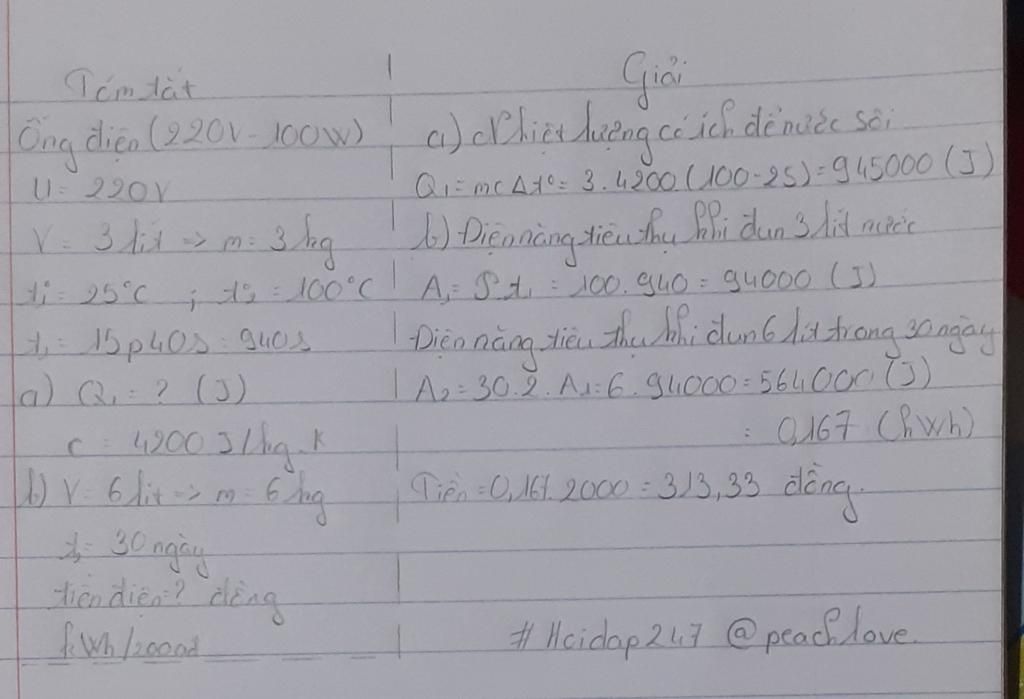 Tóm tắt
Ống điện (220V - 100W)
U = 220V
V = 3 lít => m = 3 kg
t₁° = 25°C ; t₂° = 100°C
t₁ = 15p40s = 940s
a) Q₁ = ? (J)
c = 4200 J/kg.K
b) V = 6 lít => m = 6 kg
t₂ = 30 ngày
tiền điện = ? đồng
kWh/2000đ
Giải
a) Nhiệt lượng có ích để nước sôi
Q₁ = mcΔt° = 3.4200.(100-25) = 945000 (J)
b) Điện năng tiêu thụ khi đun 3 lít nước
A₁ = P.t₁ = 100.940 = 94000 (J)
Điện năng tiêu thụ khi đun 6 lít trong 30 ngày
A₂ = 30.2.A₁ = 6.94000 = 564000 (J)
= 0,167 (kWh)
Tiền = 0,167.2000 = 313,33 đồng.
# Hoidap247 @peachlove.